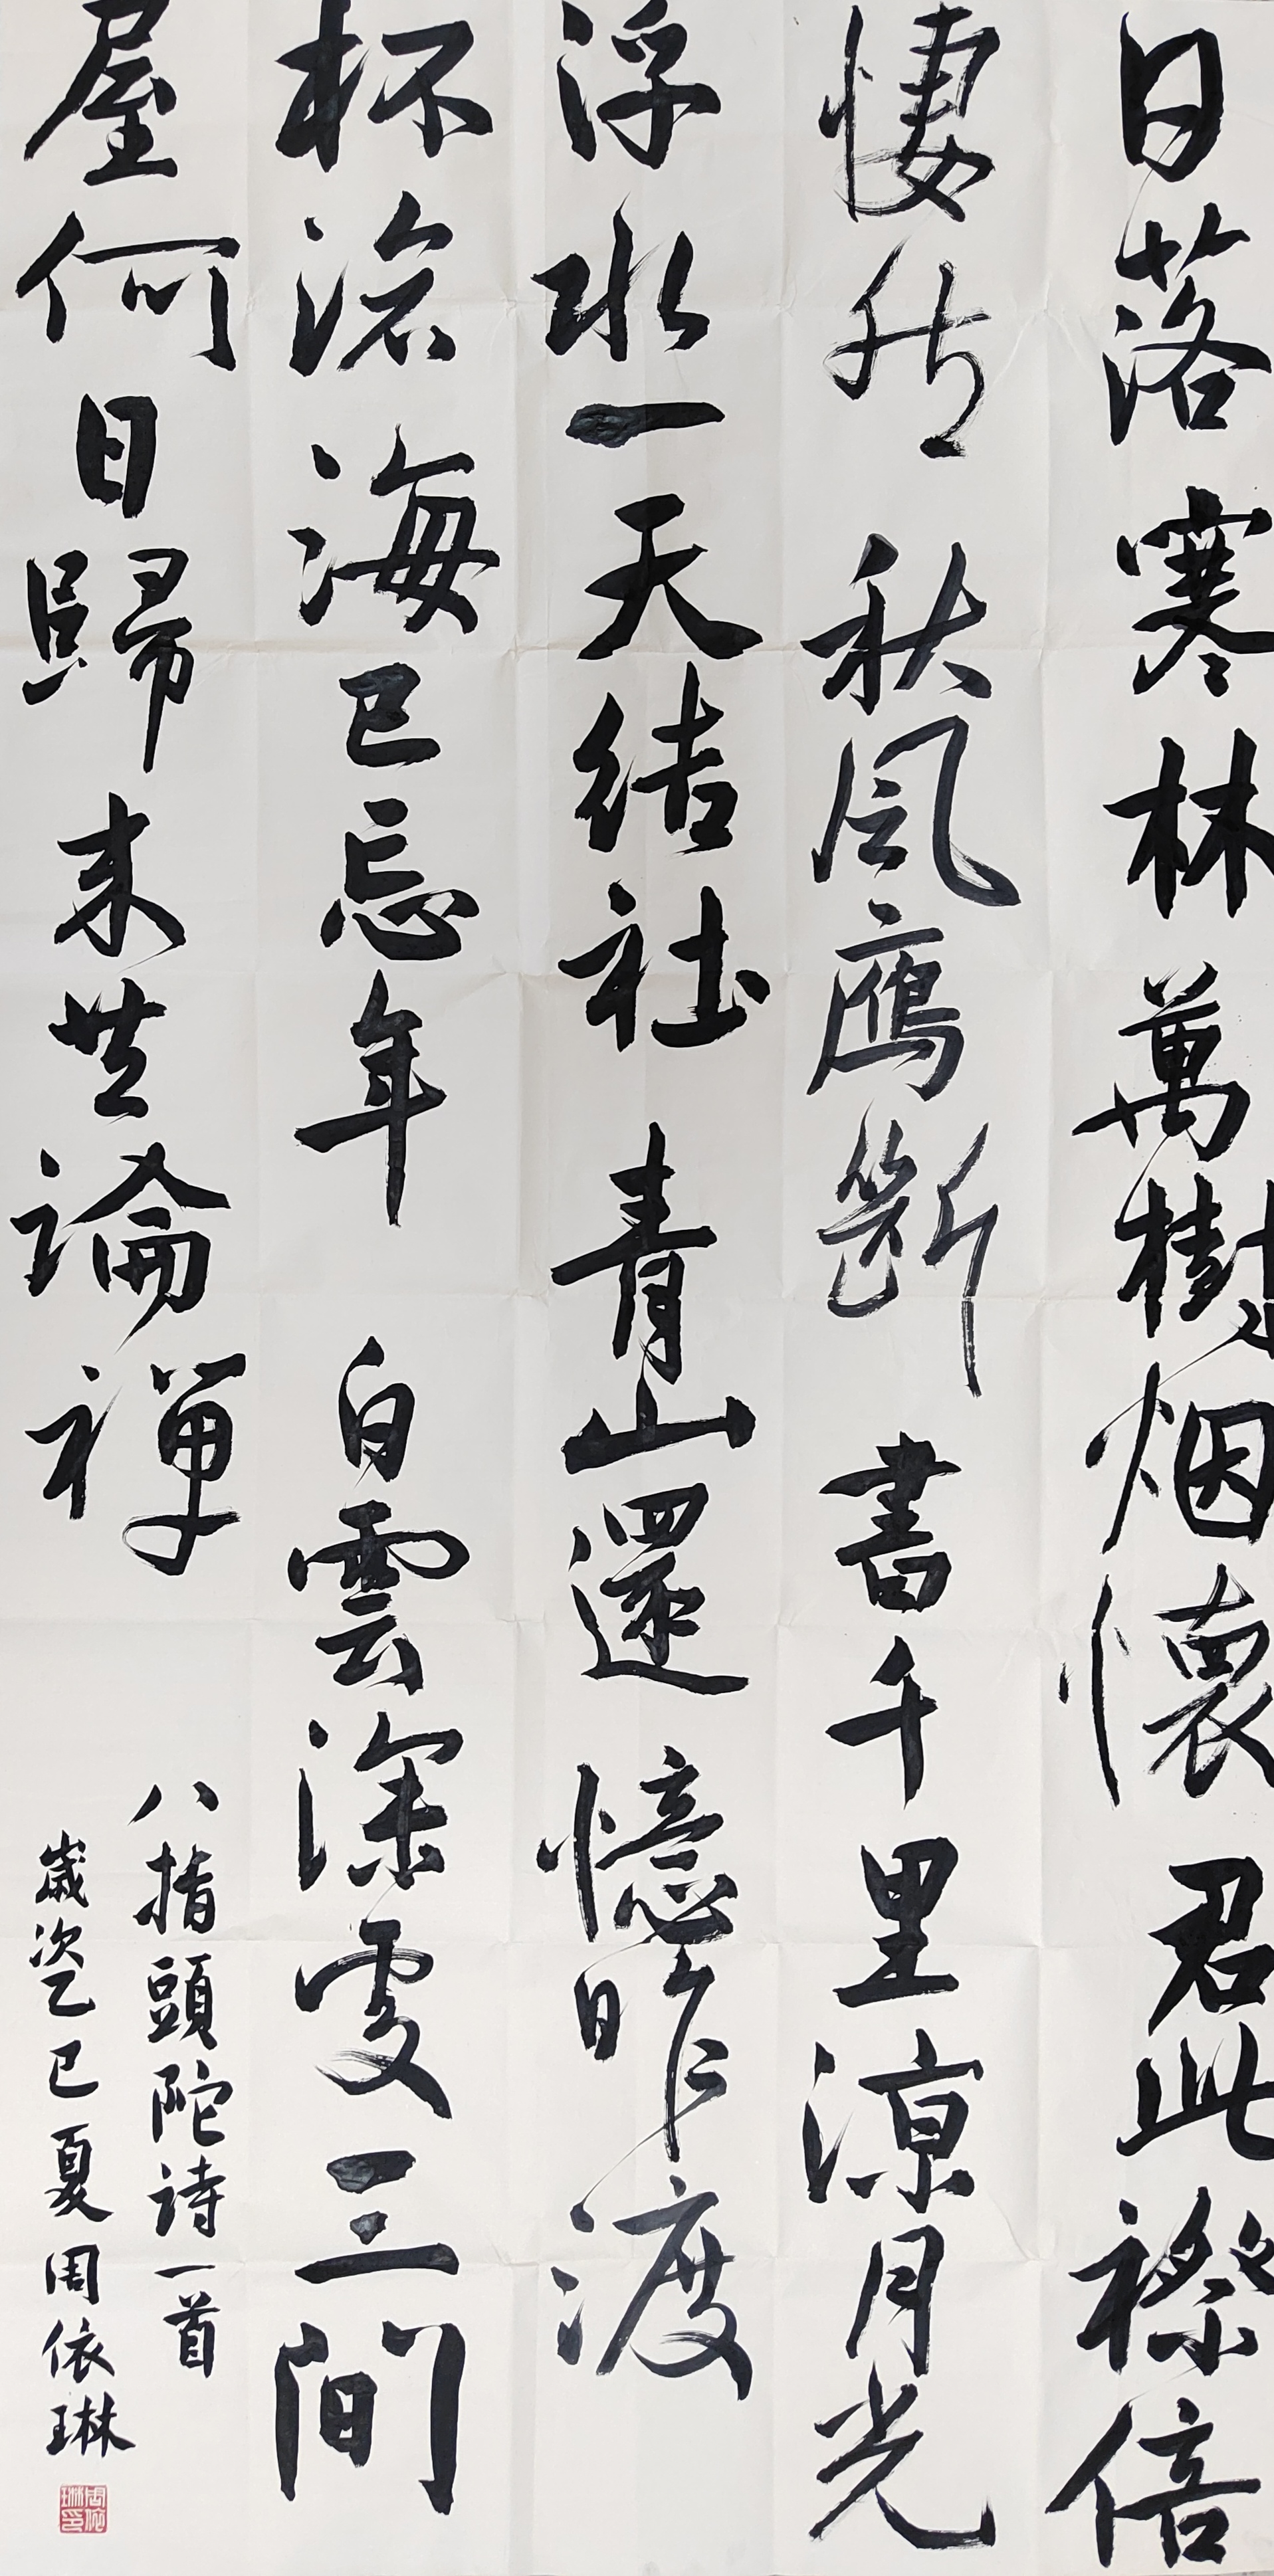 日落寒林萬樹烟懷君此際倍
悽然秋風鴈斷書千里涼月光
浮水一天結社青山還憶昨渡
杯滄海已忘年白雲深處三間
屋何日歸来共論禪
八指頭陀詩一首
歲次乙巳夏周依琳
周依琳印